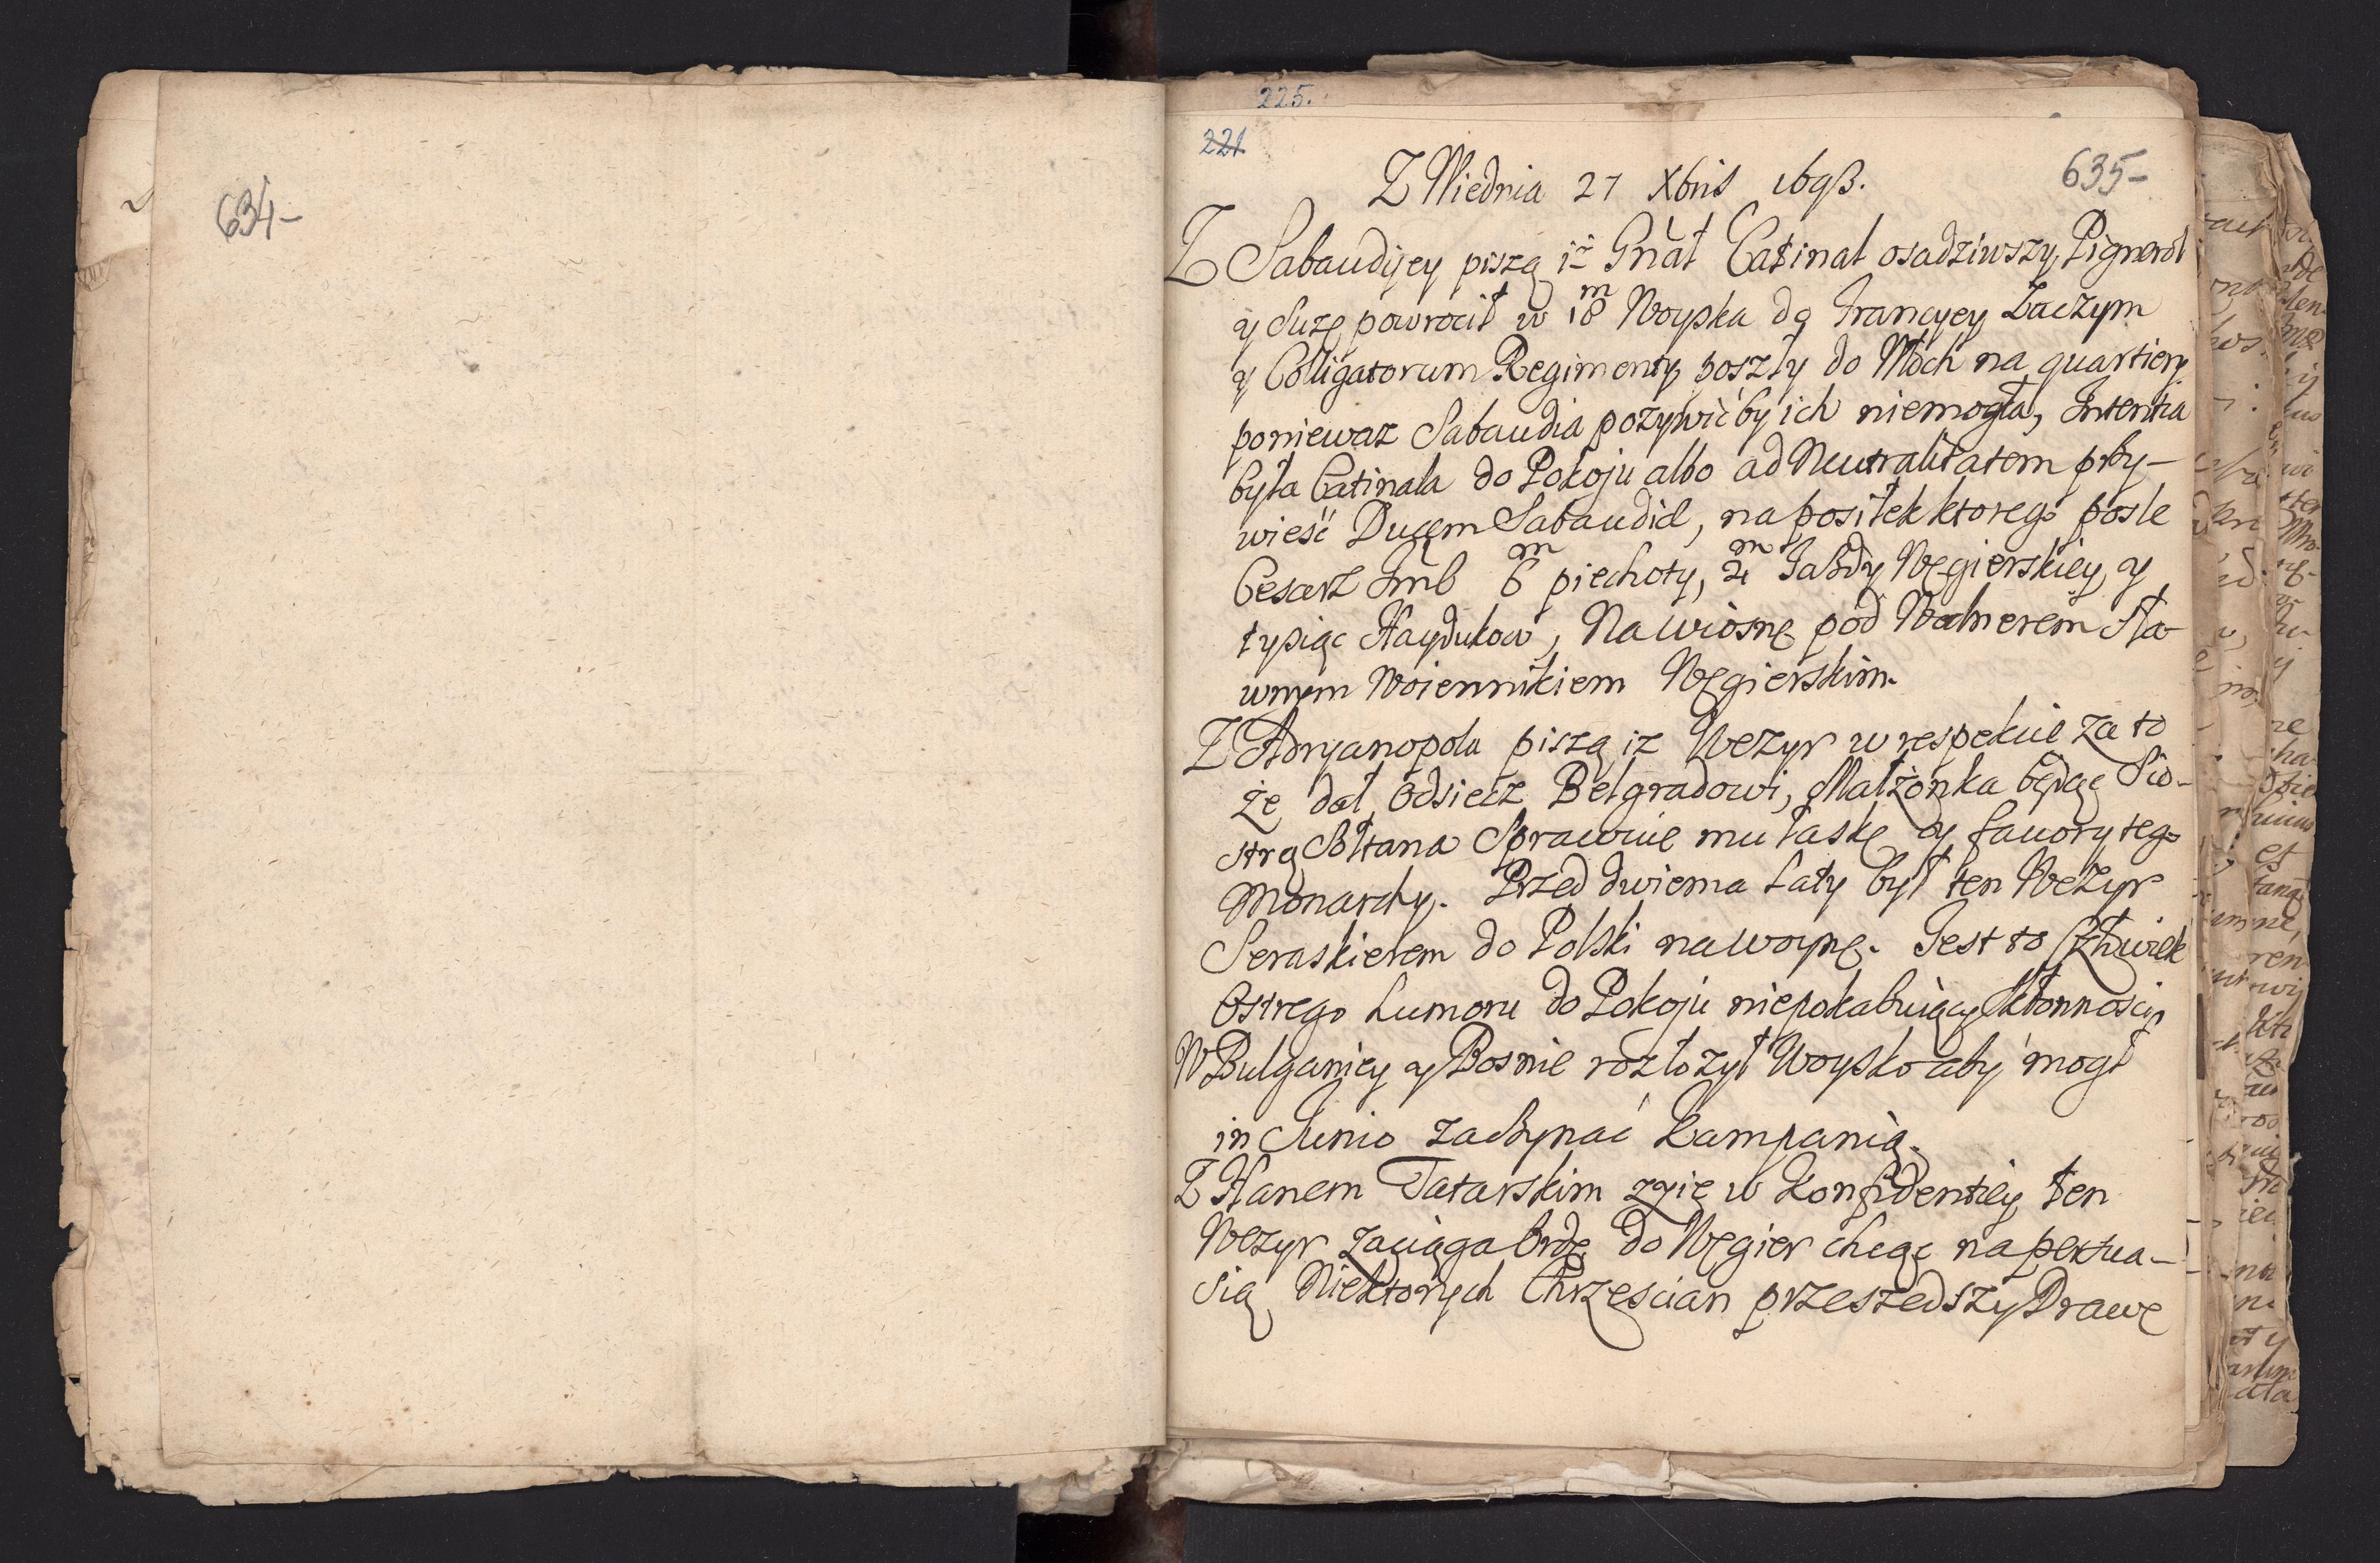 634-
225.
221
635-
Z Wiednia 27 Xbris 1693.
Z Sabaudyey piszą iż Gnał Catinat osadziwszy Pignerol
y Suzę powrocił w 18 m Woyska do Francyey Zaczym
y Colligatorum Regimenty poszły do Włoch na quartiery
poniewaz Sabaudia pozywić by ich niemogła, Intentia
była Catinata do Pokoju albo ad Neutralitatem przy-
wieść Ducem Sabaudiæ, na posiłek ktorego posle
Cesarz Imć 6 m piechoty, 2 m Jazdy Węgierskiey, y
tysiąc Haydukow, Na wiosnę pod Walnerem sła-
wnym Woiennikiem Węgierskim.
Z Adryanopola piszą iz Wezyr w respekcie za to
że dał odsiecz Belgradowi, Małżonka będąc Sio-
strą Sołtana Sprawuie mu łaskę y favory tego
Monarchy. Przed dwiema Laty był ten Wezyr
Seraskierem do Polski na woynę. Jest to Człowiek
Ostrego humoru do Pokoju niepokazuiący skłonnoscy
W Bulgariey y Bosnie rozłożył Woysko aby mogł
in Junio zaczynać Kampanią.
Z Hanem Tatarskim zyie w Konfidentiey ten
Wezyr zaciąga Ordę do Węgier chcąc na persua-
sią Niektorych Chrzescian przeszedszy Drawę